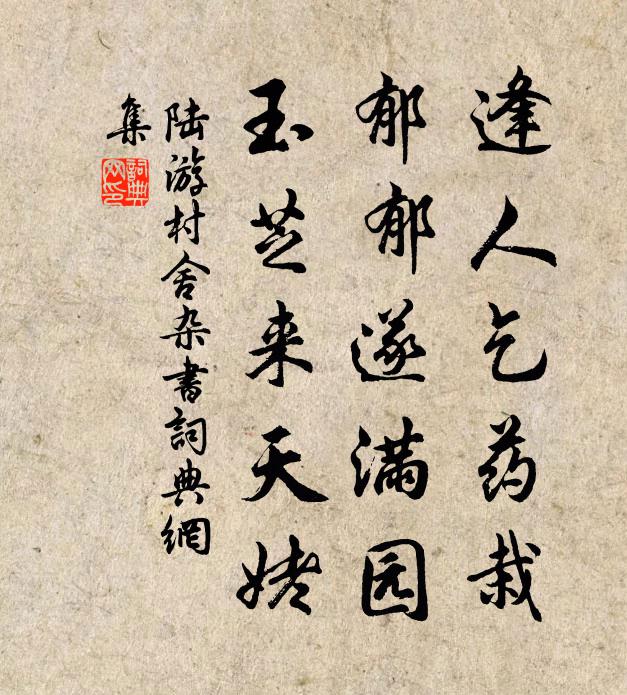 逢人乞药栽
郁郁遂满园
玉芝来天姥
陆游村舍杂书詞典網
集
詞典网印